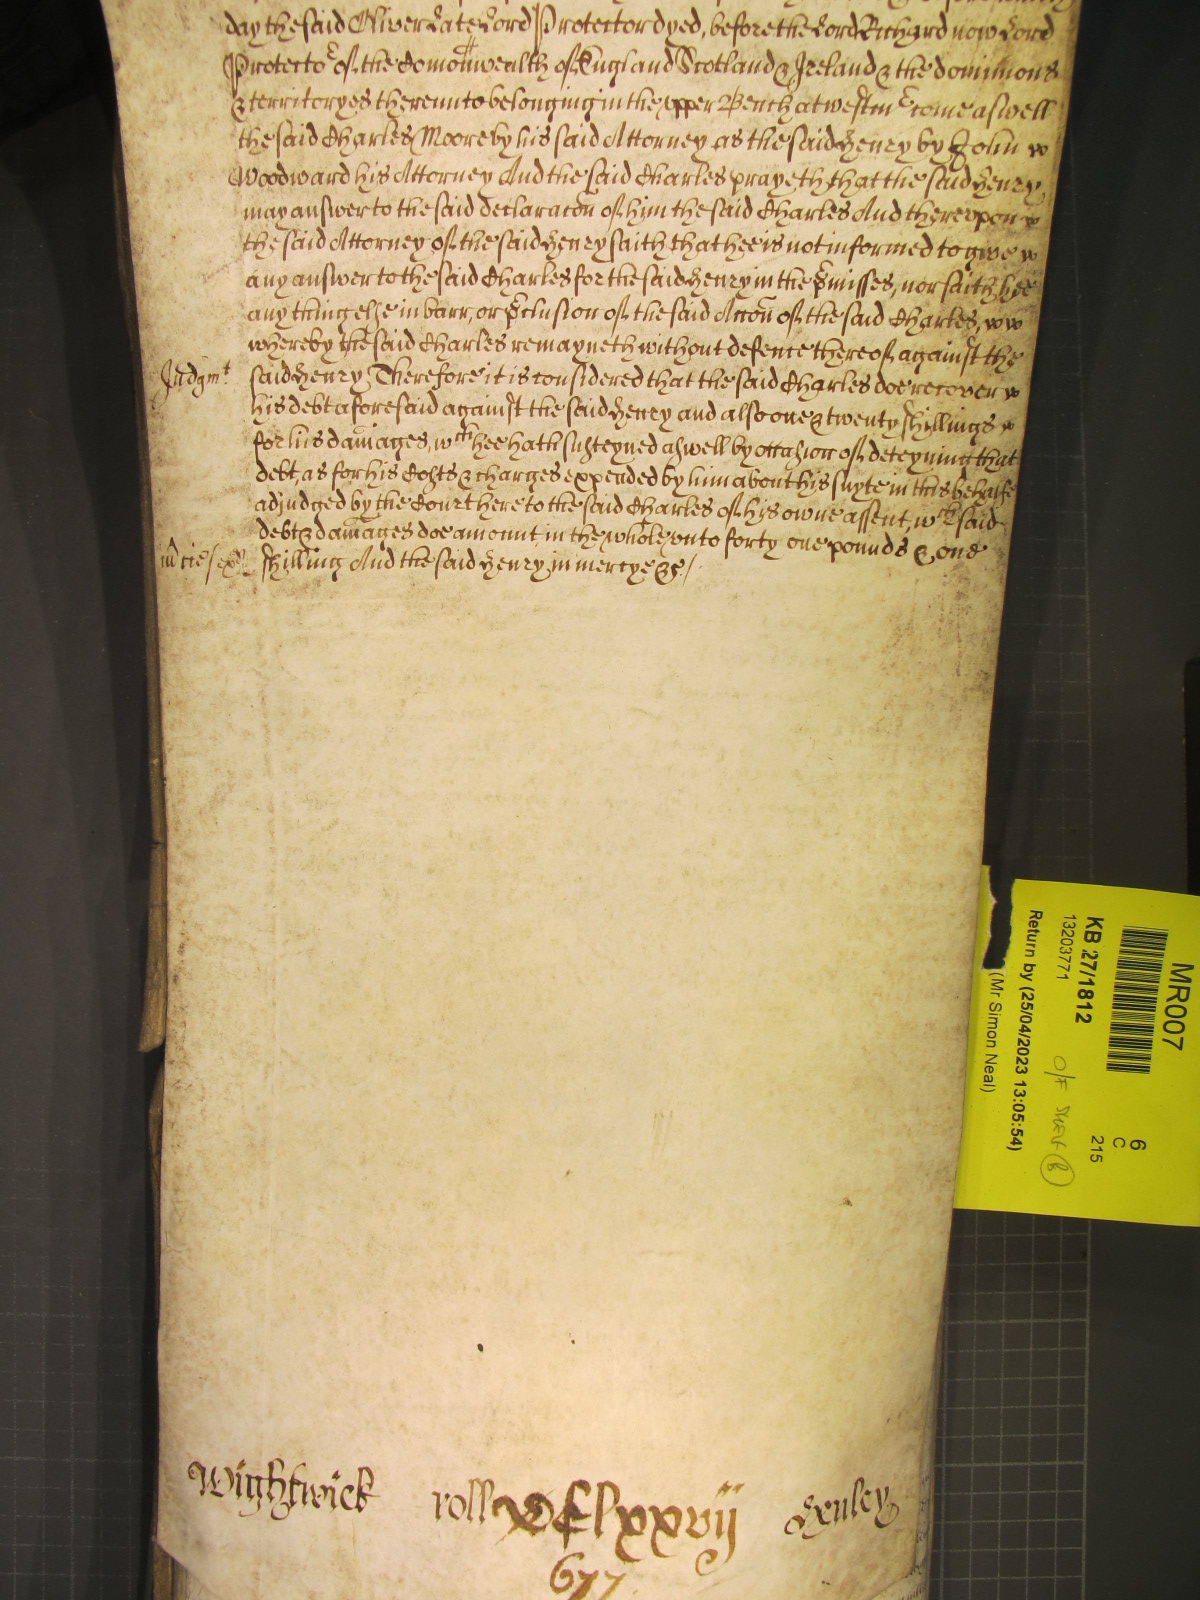 day the said Oliver Late Lord Protector dyed, before the Lord Richard now Lord
Protector of the Comonwealth of England Scotland & Ireland & the dominions
& territoryes thereunto belonging in the upper Bench at westmr come aswell
the said Charles Moore by his said Attorney as the said Henry by John
Woodward his Attorney And the said Charles prayeth that the said Henry
may answer to the said declaracon of him the said Charles And thereupon
the said Attorney of the said Henry saith that hee is not informed to give
any answer to the said Charles for the said Henry in the pmisses, nor saith hee
any thing else in barr, or pclusion of the said Accon of the said Charles,
whereby the said Charles remayneth without defence thereof against the
Judgmt
said Henry, Therefore it is considered that the said Charles doe recover
his debt aforesaid against the said Henry and also one & twenty shillings
for his damages, wch hee hath susteyned aswell by occasion of deteyning that
debt, as for his Costs & charges expended by him about his suyte in this behalfe
adjudged by the Court here to the said Charles of his owne assent, wch said
debt & damages doe amount in the whole unto forty one pounds & one
shilling And the said Henry in mercye &c /
Wightwick roll VClxxvij
677
MR007
KB 27/1812
13203771
6
C
215
Return by (25/04/2023 13:05:54)
(Mr Simon Neal)